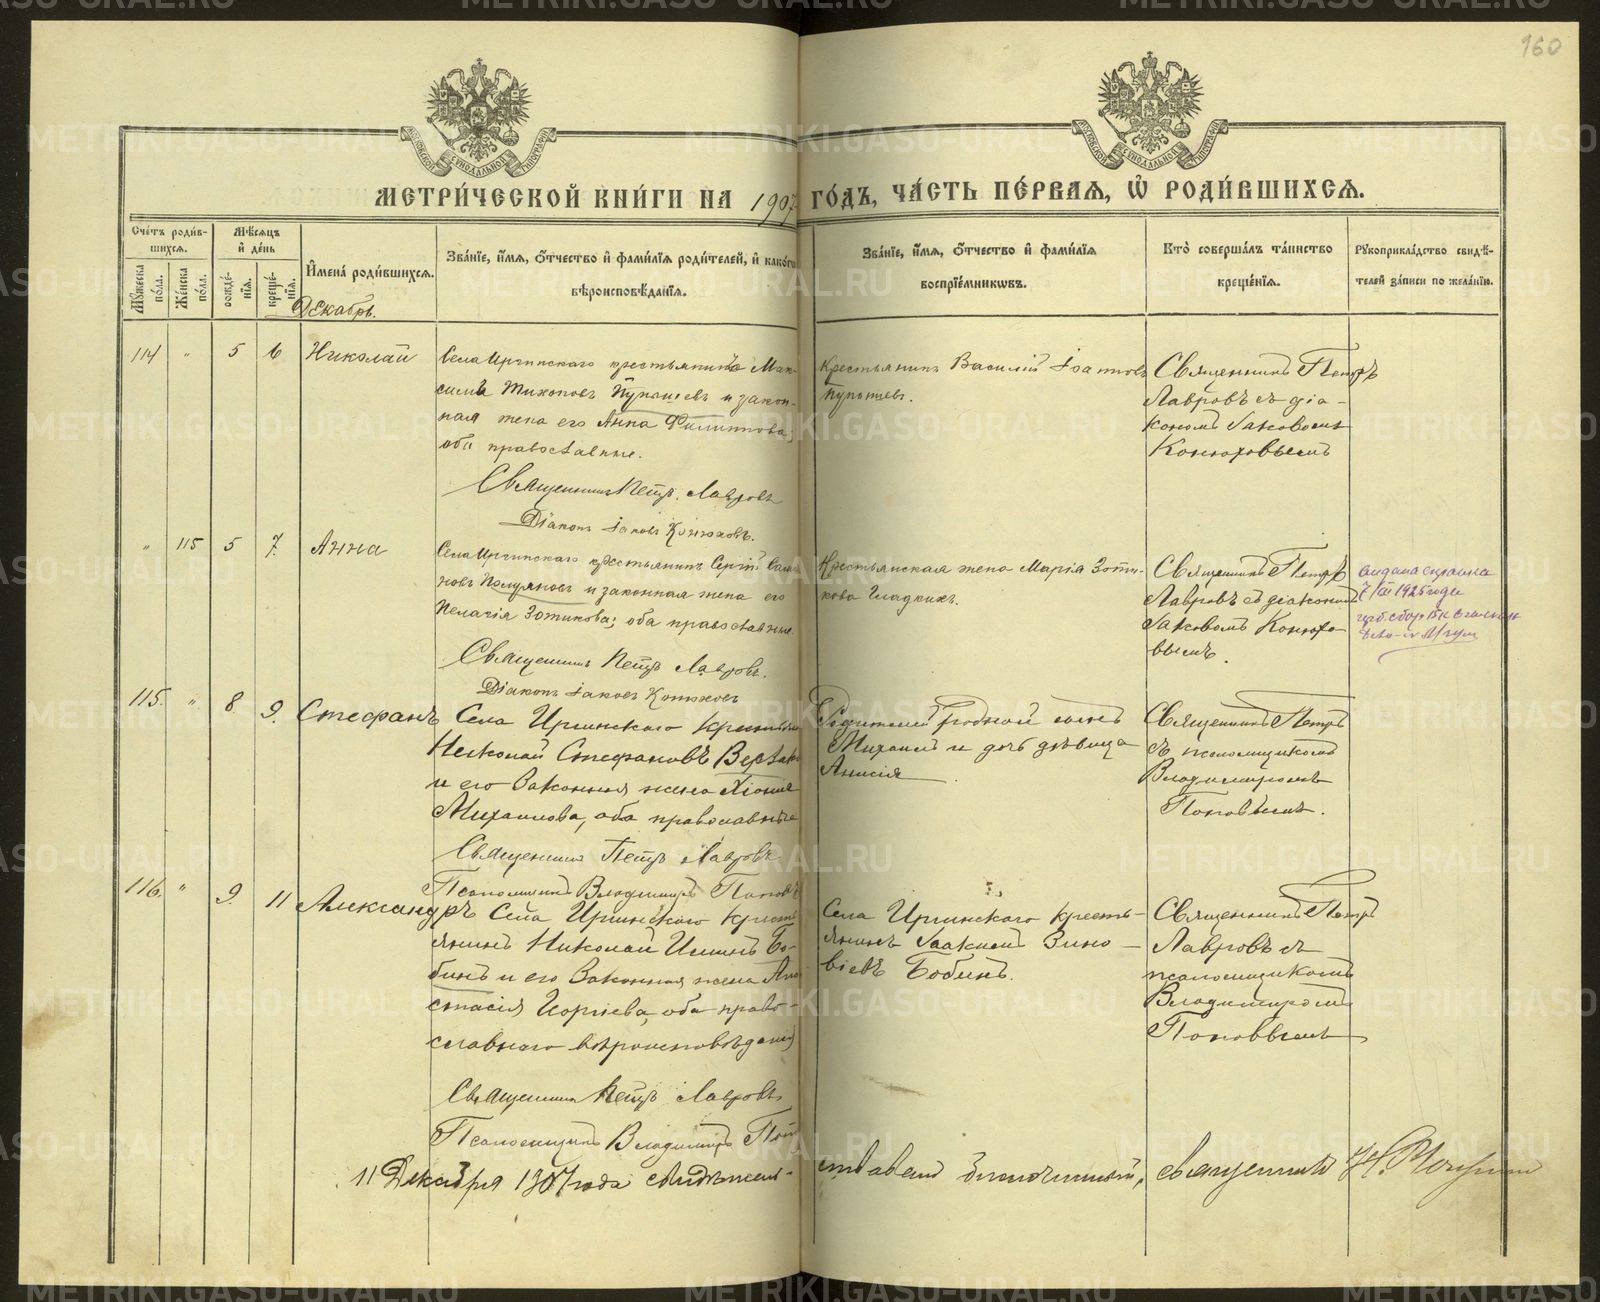 160
МОСКОВСКОЙ СѴНОДАЛЬНОЙ ТИПОГРАФІИ
МОСКОВСКОЙ СѴНОДАЛЬНОЙ ТИПОГРАФІИ
МЕТРИ́ЧЕСКОЙ КНИ́ГИ НА 1907 ГО́ДЪ, ЧА́СТЬ ПЕ́РВАЯ, Ѡ҆ РОДИ́ВШИХСЯ.
Сче́тъ роди́в-
шихся.
Мѣ́сяцъ
и҆ де́нь
Му́жеска по́ла.
Же́нска по́ла.
рожде́-
нїя.
креще́-
нїя.
И҆мена̀ роди́вшихся.
Зва́нїе, и҆́мя, ѻ҆́тчество и҆ фами́лїя роди́телей, и҆ како́гѡ
вѣроисповѣ́данїя.
Зва́нїе, и҆́мя, ѻ҆́тчество и҆ фами́лїя
воспрїе́мникѡвъ.
Кто̀ соверша́лъ та́инство
креще́нїя.
Рꙋкоприкла́дство свидѣ́-
телей за́писи по жела́нїю.
Декабрь.
114 " 5 6 Николай
Села Иргинскаго крестьянинъ Мак-
симъ и закон-
ная жена его Анна Филиппова;
оба православные.
Священникъ Петръ Лавровъ
Діаконъ Іаковъ Конюховъ.
Крестьянинъ Василій Іоанновъ
Священникъ Петръ
Лавровъ съ діа-
кономъ Іаковомъ
Конюховымъ
" 115 5 7. Анна
Села Иргинскаго крестьянинъ Сергій
и законная жена его
Пелагія Зотикова; оба православные.
Священникъ Петръ Лавровъ.
Діаконъ Іаковъ Конюховъ
Крестьянская жена Марія Зоти-
кова Гладкихъ.
Священникъ Петръ
Лавровъ съ діакономъ
Іаковомъ Конюхо-
вымъ.
выдана справка
7/III 1925 года
115. " 8 9. Стефанъ
Села Иргинскаго крестьян
Николай Стефановъ
и его законная жена Хіонія
Михаилова, оба православные
Священникъ Петръ Лавровъ
Псаломщикъ Владимиръ Поповъ
Родителей родной сынъ
Михаилъ и дочь дѣвица
Анисія
Священникъ Петръ
съ псаломщикомъ
Владимиромъ
Поповымъ.
116. " 9. 11 Александръ
Села Иргинскаго крест
янинъ Николай Ильинъ Бо-
бинъ и его законная жена Ана
стасія Георгіева, оба право-
славнаго вѣроисповѣданія
Священникъ Петръ Лавровъ
Псаломщикъ Владимиръ Поп
Села Иргинскаго кресть-
янинъ Іоакимъ Зино-
віевъ Бобинъ.
Священникъ Петръ
Лавровъ съ
псаломщикомъ
Владимиромъ
Поповымъ
11 Декабря 1907 года свидѣтель-
ствовалъ благочинный, священникъ
METRIKI.GASO-URAL.RU